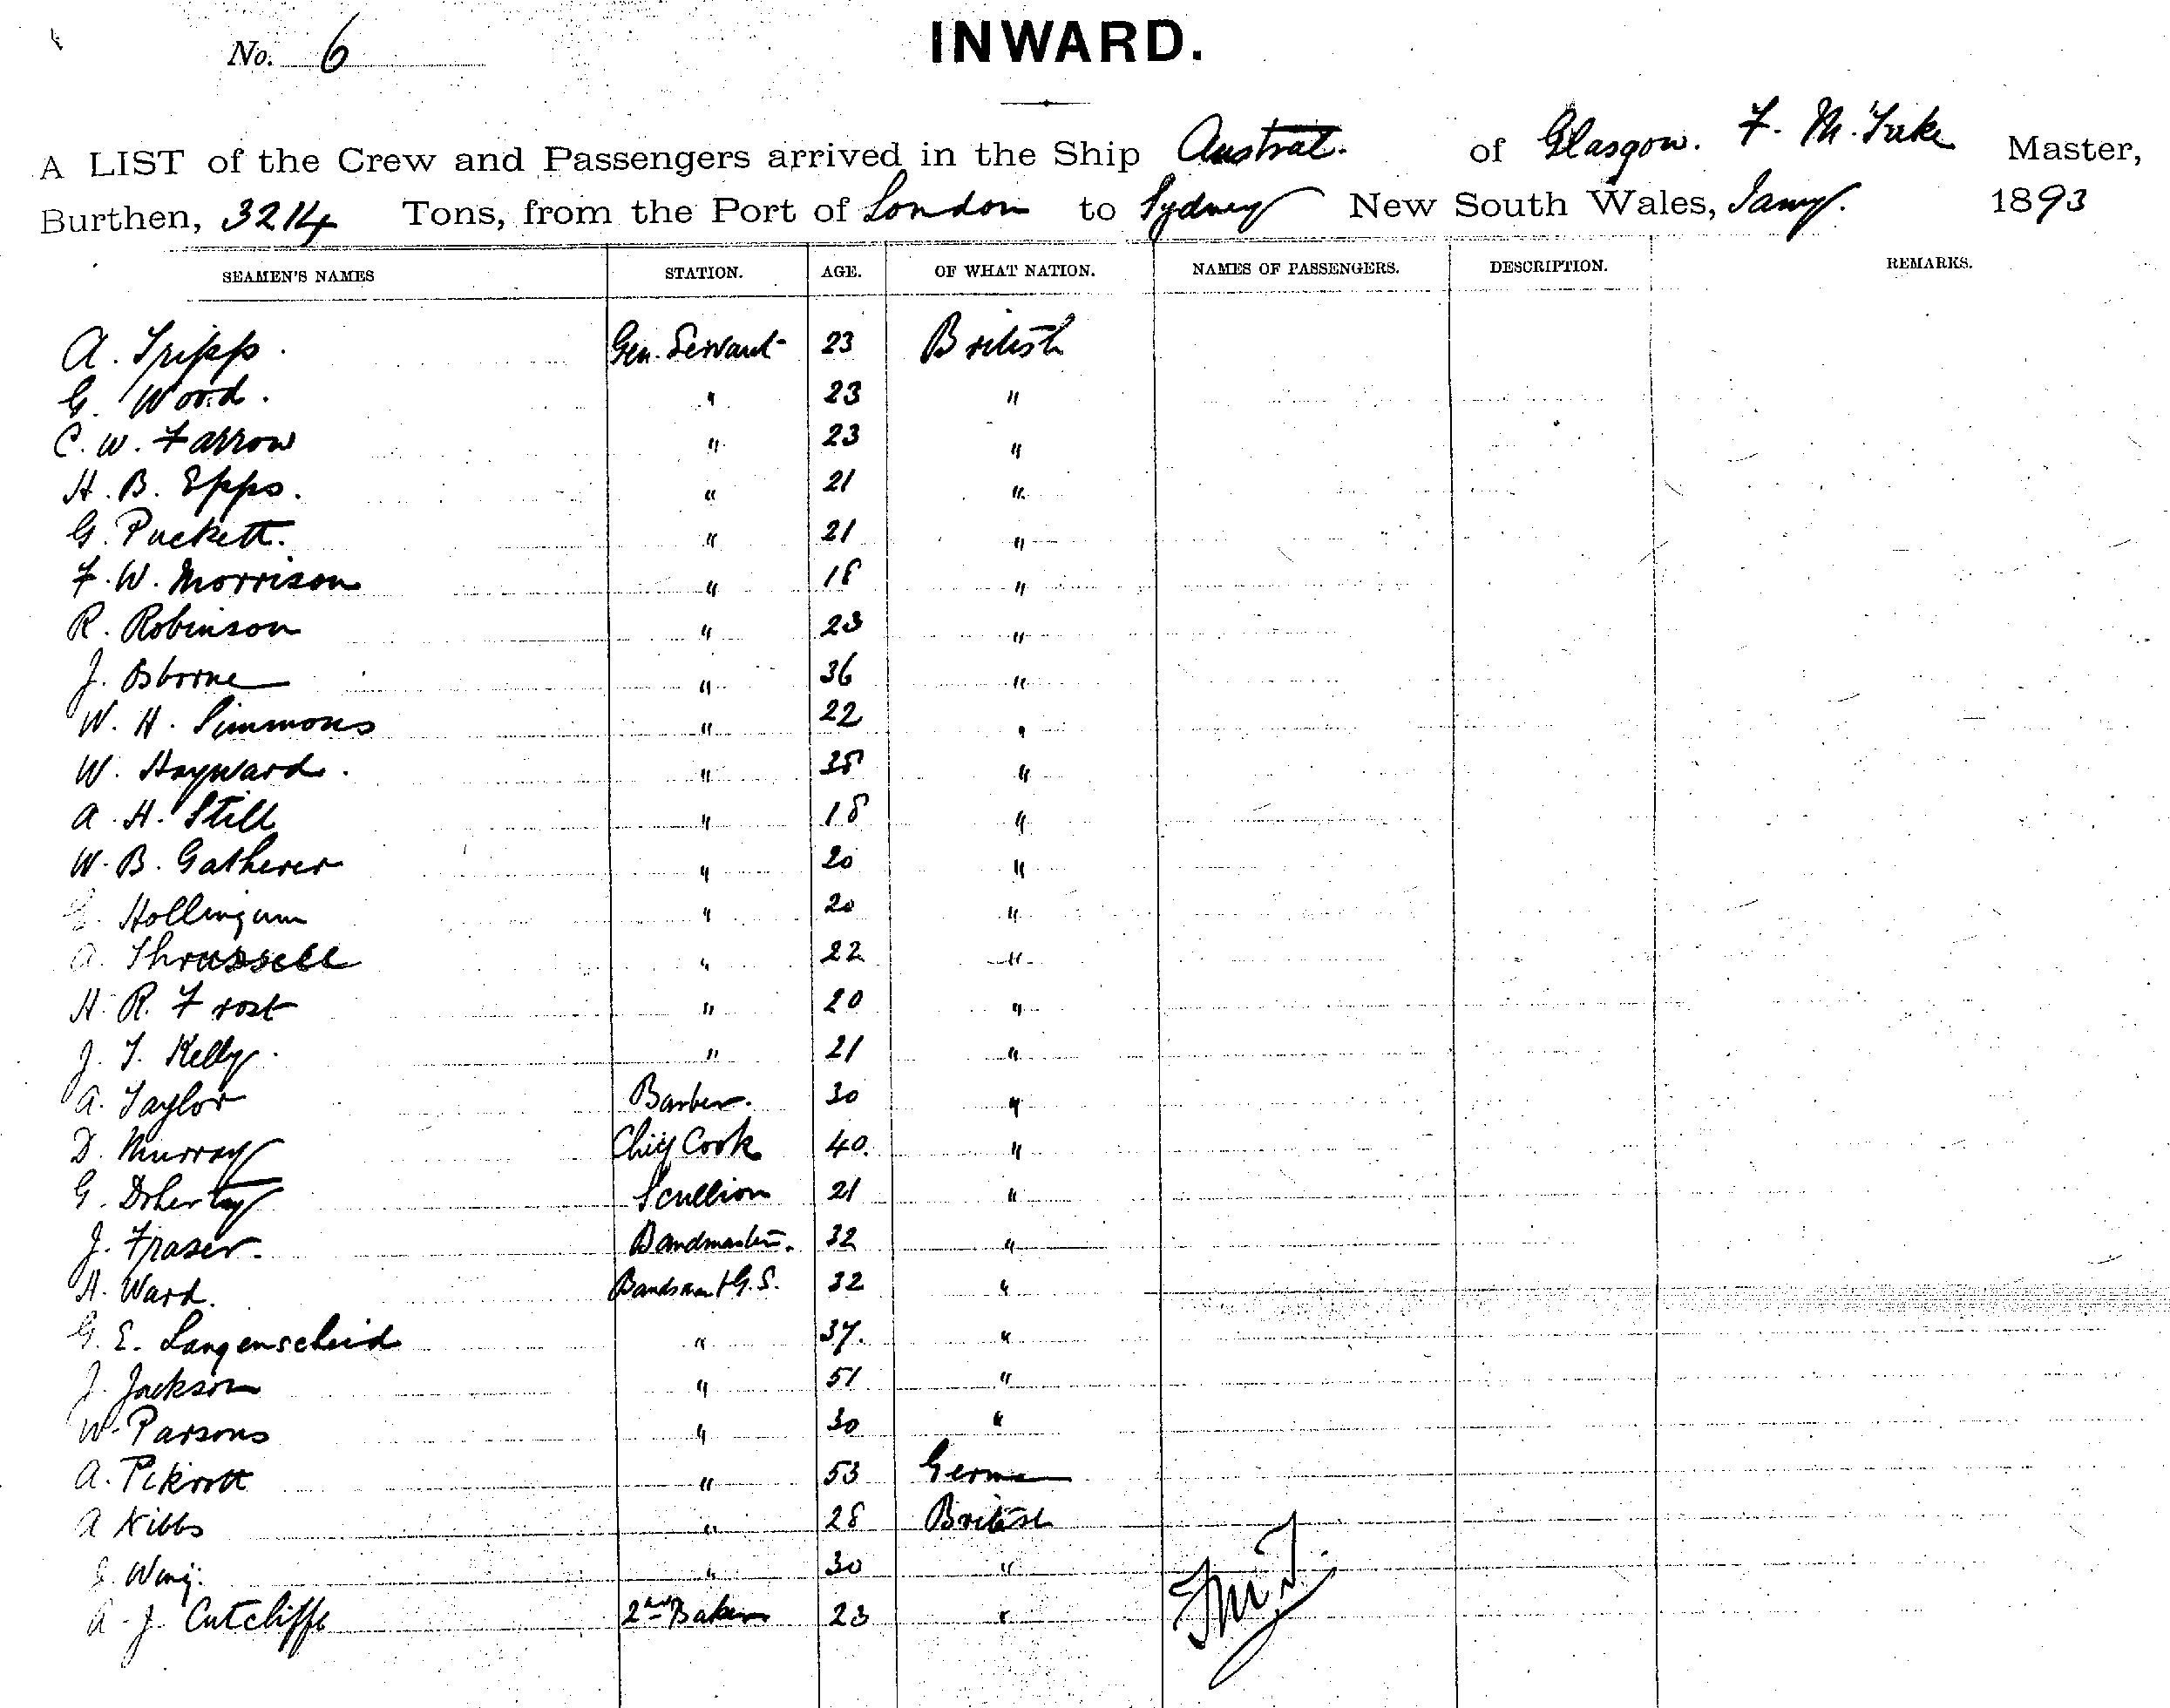 No. 6
INWARD.
A LIST of the Crew and Passengers arrived in the Ship Austral. of Glasgow. F. M. Tuke Master,
Burthen, 3214 Tons, from the Port of London to Sydney New South Wales, Jany. 1893
SEAMEN'S NAMES STATION. AGE. OF WHAT NATION. NAMES OF PASSENGERS. DESCRIPTION. REMARKS.
A. Tripp. Gen. Servant 23 British
G. Wood. " 23 "
C. W. Farrow " 23 "
H. B. Epps. " 21 "
G. Puckett. " 21 "
F. W. Morrison " 18 "
R. Robinson " 23 "
J. Osborne " 36 "
W. H. Simmons " 22 "
W. Hayward. " 38 "
A. H. Still " 18 "
W. B. Gatherer " 20 "
Hollingum " 20 "
A. Thrussell " 22 "
H. R. Frost " 20 "
J. T. Kelly. " 21 "
A. Taylor Barber. 30 "
D. Murray Chief Cook 40. "
G. Doherty Scullion 21 "
J. Fraser. Bandmaster. 32 "
H. Ward. Bandsman & G. S. 32 "
G. E. Langenscheid " 37. "
J. Jackson " 51 "
W. Parsons " 30 "
A. " 53 German
A Kibbs " 28 British
" 30 "
A. J. Cutcliffe 2nd Baker 23 "
FMT.